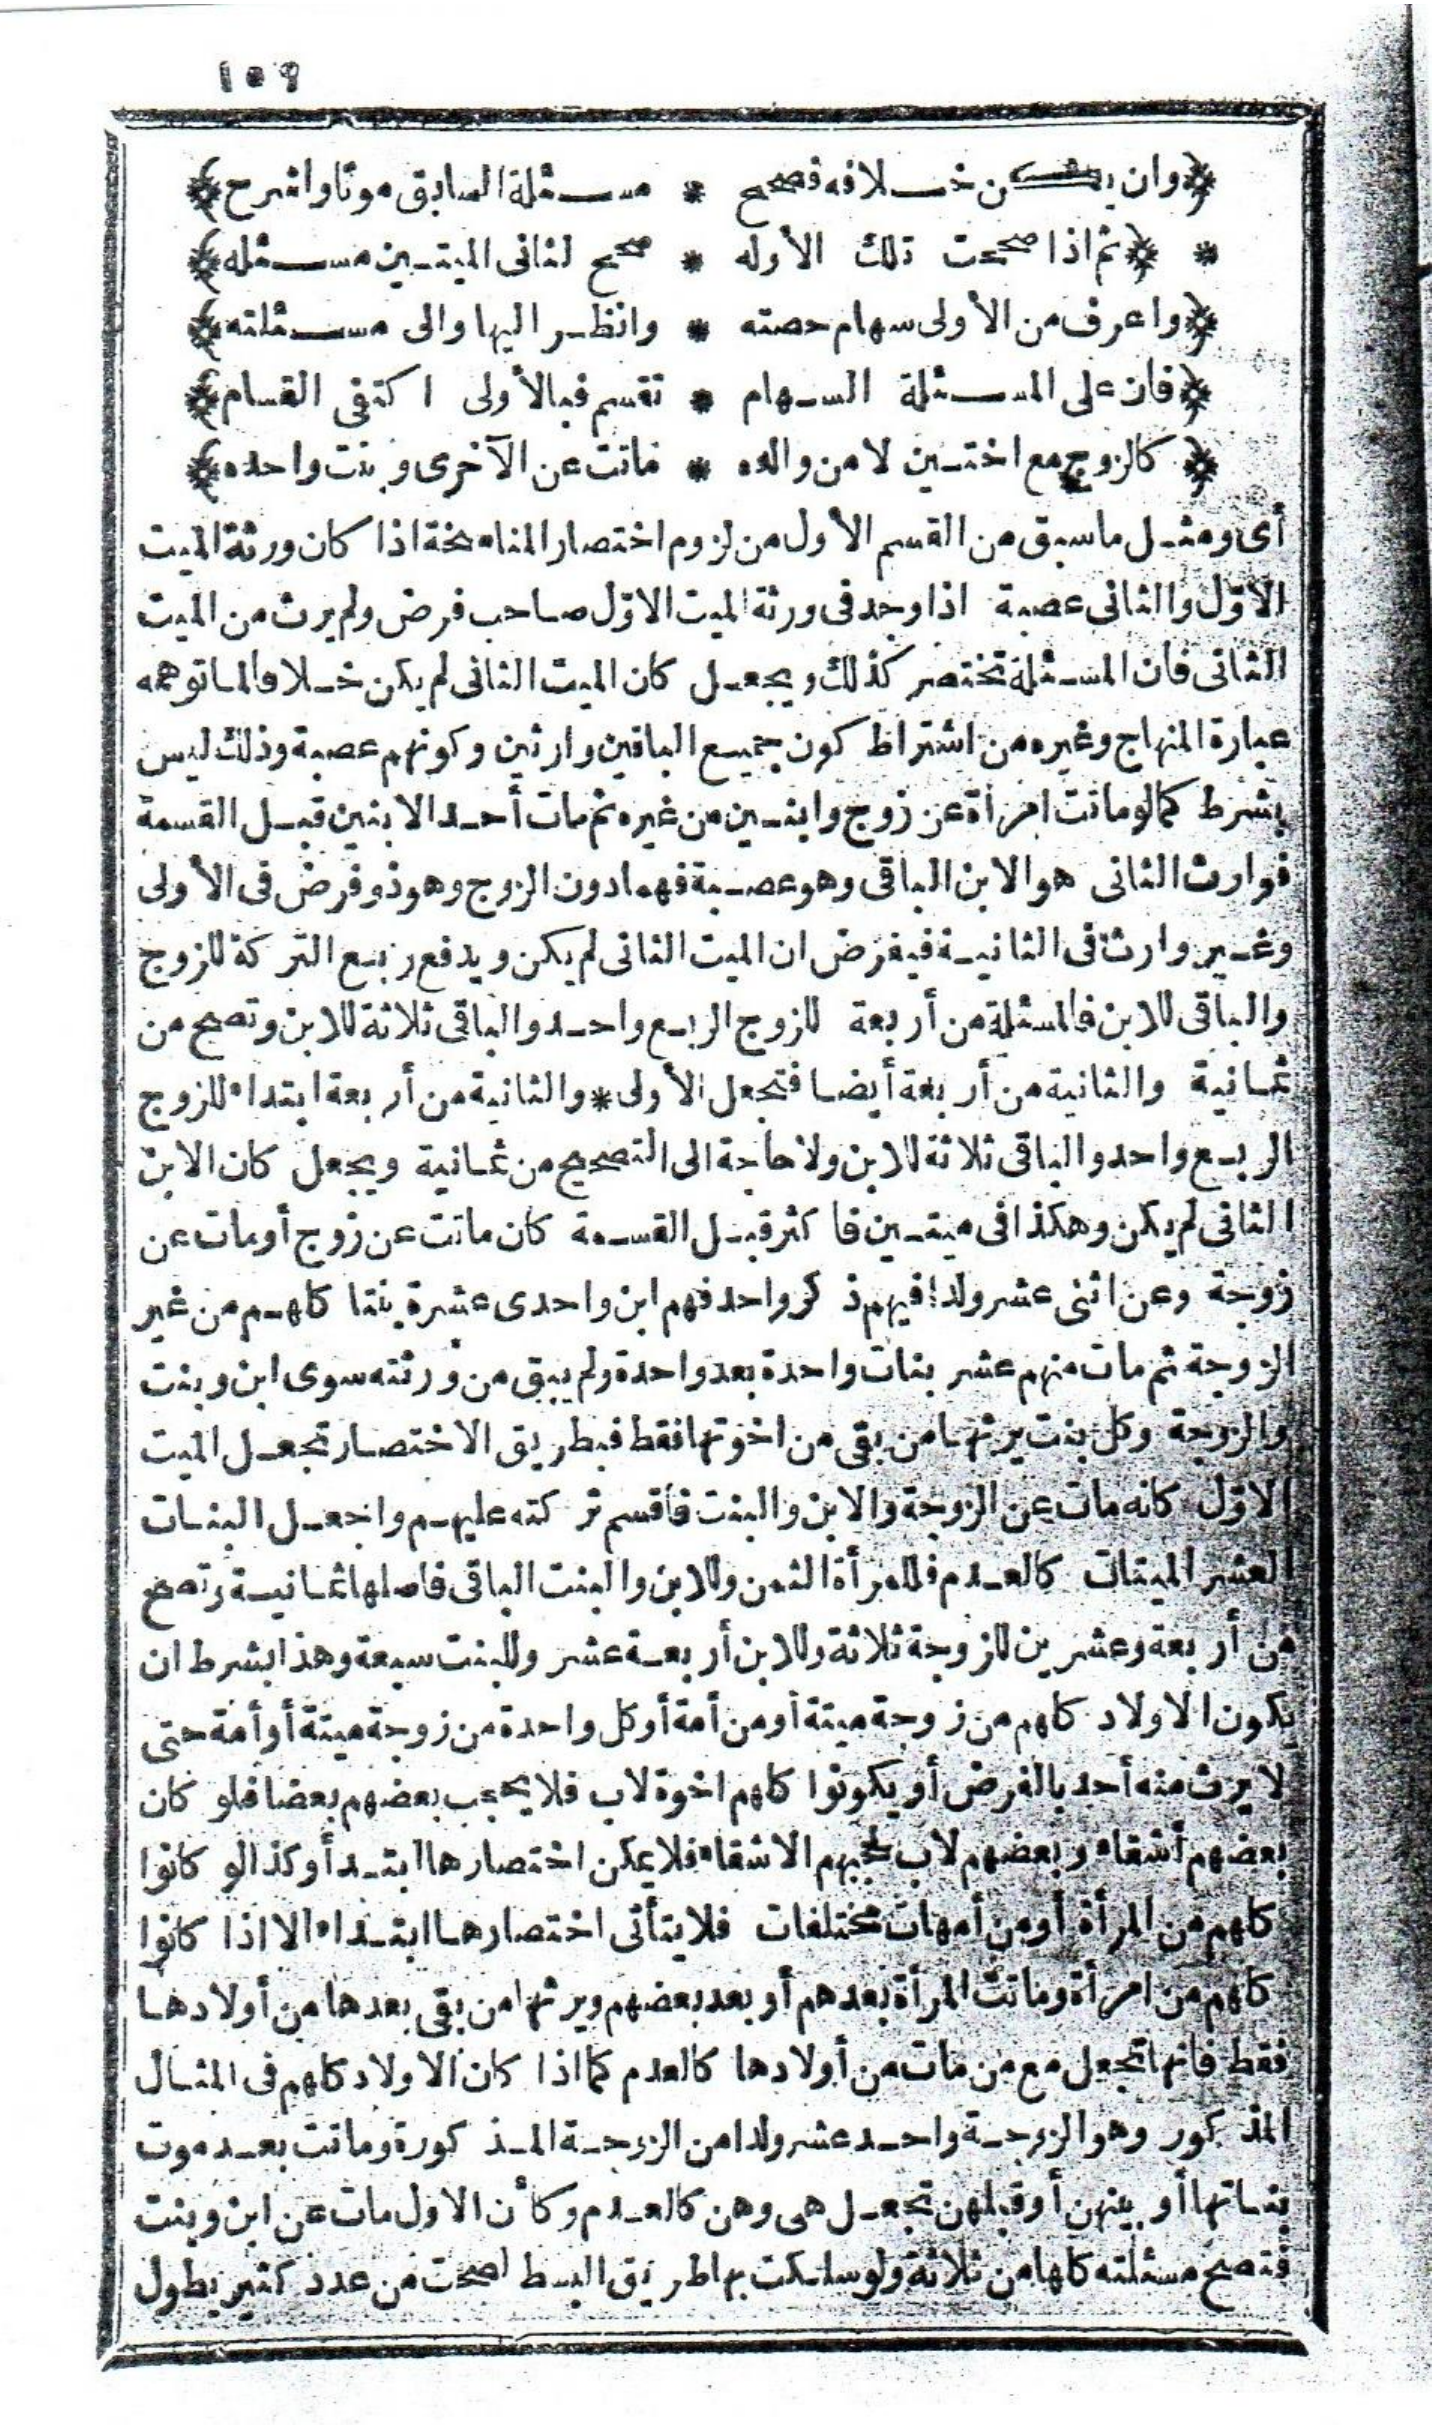 ١٥٩
﴿وان يكن خلافه فصحح * مسئلة السابق موتا واشرح﴾
* ﴿ثم اذا صححت تلك الأوله * صحح لثانى الميتين مسئله﴾
﴿واعرف من الأولى سهام حصته * وانظر اليها والى مسئلته﴾
﴿فان على المسئلة السهام * تقسم فبالأولى اكتفى القسام﴾
﴿كالزوج مع اختين لا من والده * فماتت عن الآخرى وبنت واحده﴾
أى ومثل ما سبق من القسم الأول من لزوم اختصار المناسخة اذا كان ورثة الميت
الاوّل والثانى عصبة اذا وجد فى ورثة الميت الاوّل صاحب فرض ولم يرث من الميت
الثانى فان المسئلة تختصر كذلك ويجعل كان الميت الثانى لم يكن خلافا لما توهمه
عبارة المنهاج وغيره من اشتراط كون جميع الباقين وارثين وكونهم عصبة وذلك ليس
بشرط كما لو ماتت امرأة عن زوج وابنين من غيره ثم مات أحد الابنين قبل القسمة
فوارث الثانى هو الابن الباقى وهو عصبة فهما دون الزوج وهو ذو فرض فى الأولى
وغير وارث فى الثانية فيفرض ان الميت الثانى لم يكن ويدفع ربع التركة للزوج
والباقى للابن فالمسئلة من أربعة للزوج الربع واحد والباقى ثلاثة للابن وتصح من
ثمانية والثانية من أربعة أيضا فتجعل الأولى * والثانية من أربعة ابتداء للزوج
الربع واحد والباقى ثلاثة للابن ولا حاجة الى التصحيح من ثمانية ويجعل كان الابن
الثانى لم يكن وهكذا فى ميتين فاكثر قبل القسمة كان ماتت عن زوج أو مات عن
زوجة وعن اثنى عشر ولدا فيهم ذكر واحد فهم ابن واحدى عشرة بنتا كلهم من غير
الزوجة ثم مات منهم عشر بنات واحدة بعد واحدة ولم يبق من ورثته سوى ابن وبنت
والزوجة وكل بنت يرثها من بقى من اخوتها فقط فبطريق الاختصار تجعل الميت
الاوّل كانه مات عن الزوجة والابن والبنت فاقسم تركته عليهم واجعل البنات
العشر الميتات كالعدم فللمرأة الثمن وللابن والبنت الباقى فاصلها ثمانية وتصح
من أربعة وعشرين للزوجة ثلاثة وللابن أربعة عشر وللبنت سبعة وهذا بشرط ان
يكون الاولاد كلهم من زوجة ميتة أو من أمة أو كل واحدة من زوجة ميتة أو أمة حتى
لا يرث منه أحد بالفرض أو يكونوا كلهم اخوة لاب فلا يحجب بعضهم بعضا فلو كان
بعضهم أشقاء وبعضهم لاب لحجبهم الاشقاء فلا يمكن اختصارها ابتدأ وكذا لو كانوا
كلهم من المرأة أو من أمهات مختلفات فلا يتأتى اختصارها ابتداء الا اذا كانوا
كلهم من امرأة وماتت المرأة بعدهم أو بعد بعضهم ويرثها من بقى بعدها من أولادها
فقط فانها تجعل مع من مات من أولادها كالعدم كما اذا كان الاولاد كلهم فى المثال
المذكور وهو الزوجة واحد عشر ولدا من الزوجة المذكورة وماتت بعد موت
بناتها أو بينهن أو قبلهن تجعل هى وهن كالعدم وكأن الاول مات عن ابن وبنت
فتصح مسئلته كلها من ثلاثة ولو سلكت بها طريق البسط لصحت من عدد كثير يطول